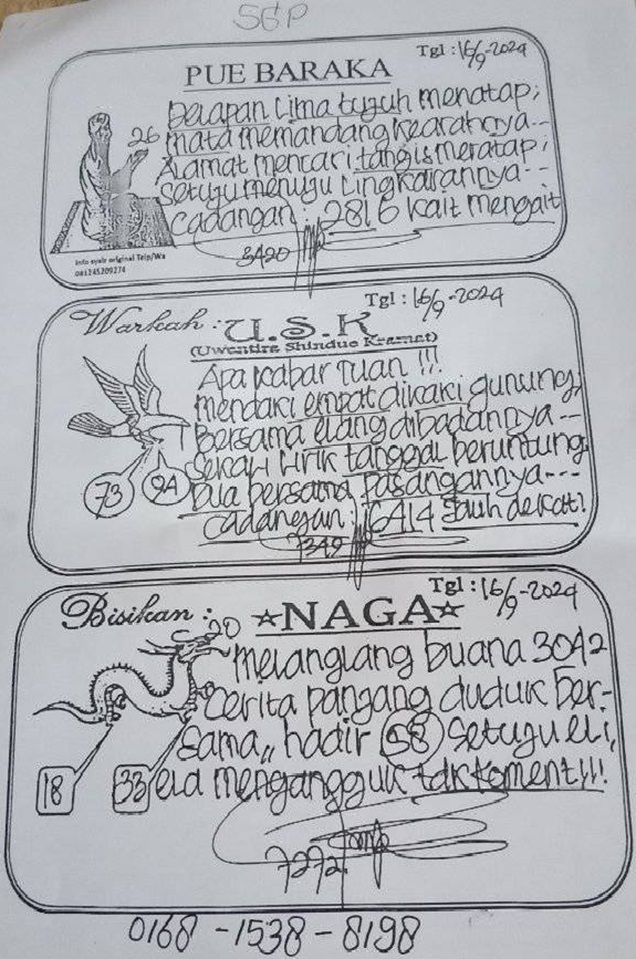 SGP
Tgl : 16/9-2024
PUE BARAKA
Delapan Lima tujuh menatap,
26 mata memandang kearahnya--
Alamat mencari tangis meratap,
Setuju menuju Lingkarannya--
Cadangan : 2816 kait mengait
3420
Info syair original Telp/Wa
081245209274
Tgl : 16/9-2024
Warkah : U.S.K
(Uwentira Shindue Kramat)
Apa kabar Tuan !!!
mendaki empat dikaki gunung,
Bersama elang dibadannya--
Sekali Lirik tanggal beruntung
73 94 Dua bersama pasangannya---
Cadangan : 6414 Jauh dekat!
7349
Tgl : 16/9-2024
Bisikan : ☆NAGA☆
20
melanglang buana 3042
Cerita panjang duduk ber-
sama,, hadir 58 Setuju eli,
18 33 ela mengangguk tak koment!!!
7272
0168 -1538 - 8198